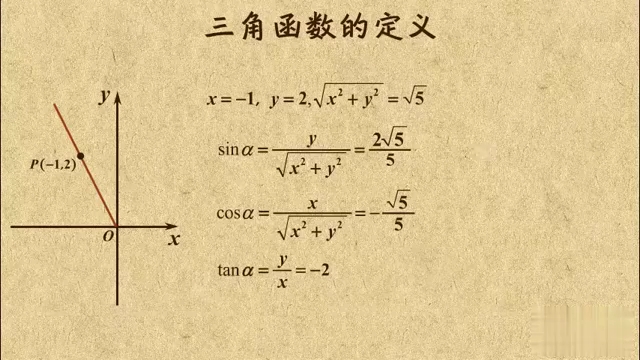 三角函数的定义
y
x = −1, y = 2, √(x² + y²) = √5
sin α = y/√(x² + y²) = 2√5/5
P(−1,2)
cos α = x/√(x² + y²) = −√5/5
O
x
tan α = y/x = −2